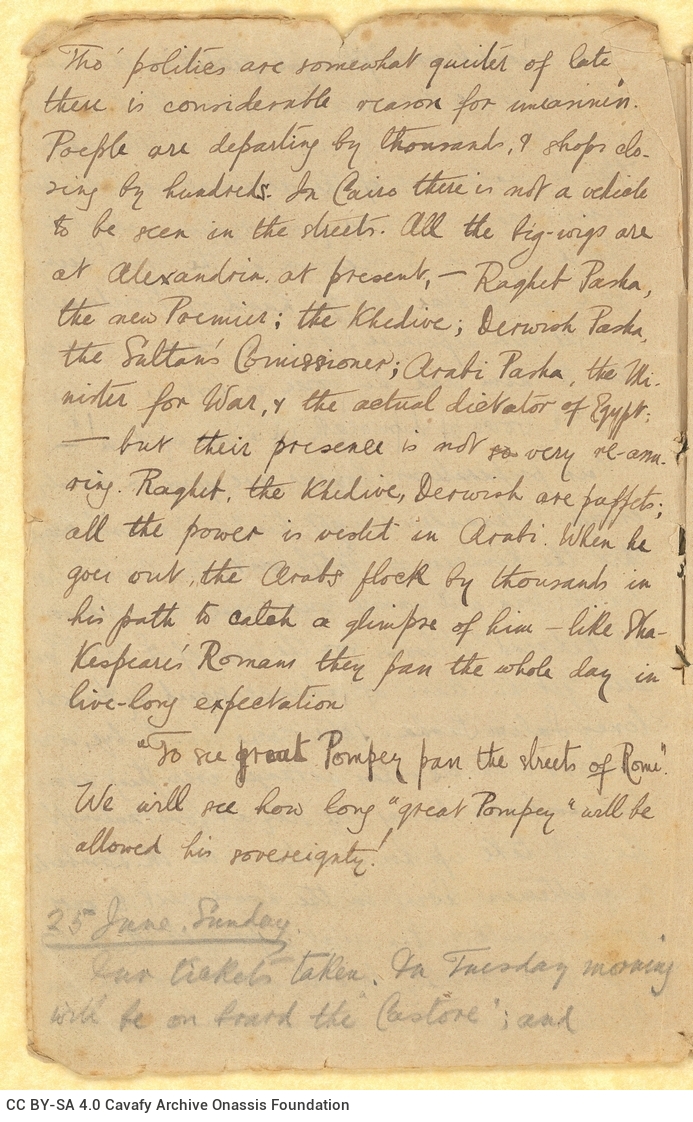 Tho' politics are somewhat quieter of late
there is considerable reason for uneasiness.
Poeple are departing by thousands, & shops clo-
sing by hundreds. In Cairo there is not a vehicle
to be seen in the streets. All the big-wigs are
at Alexandria at present, — Raghet Pasha,
the new Premier; the Khedive; Derwish Pasha,
the Sultan's Comissioner; Arabi Pasha, the Mi-
nister for War, & the actual dictator of Egypt;
— but their presence is not so very re-assu-
ring. Raghet, the Khedive, Derwish are puppets;
all the power is vested in Arabi. When he
goes out, the Arabs flock by thousands in
his path to catch a glimpse of him — like Sha-
kespeare's Romans they pass the whole day in
live-long expectation
"To see great Pompey pass the streets of Rome".
We will see how long "great Pompey" will be
allowed his sovereignty!
25 June. Sunday.
Our tickets taken. On Tuesday morning
will be on board the "Castore"; and
CC BY-SA 4.0 Cavafy Archive Onassis Foundation